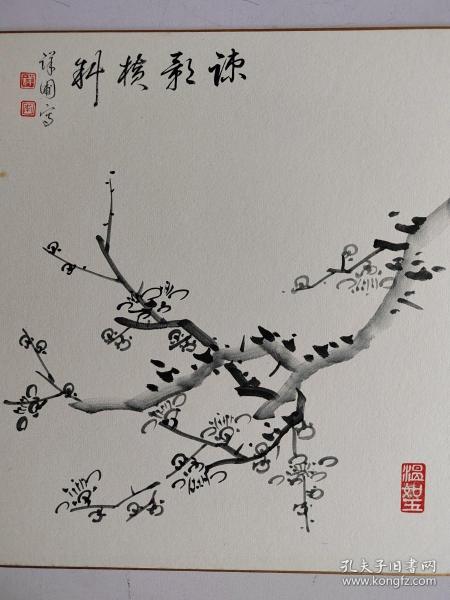 疎影横斜
祥圃写
温如玉
孔夫子旧书网
www.kongfz.com